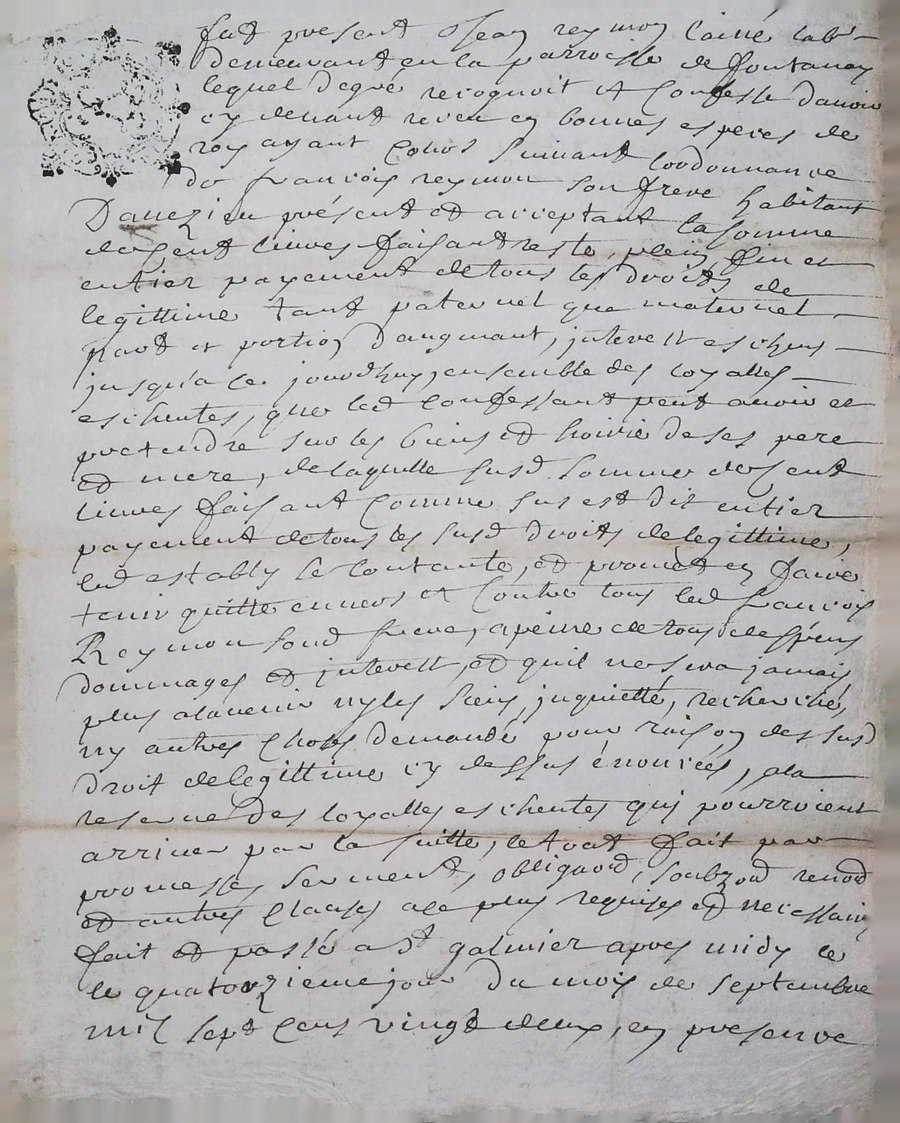 fut present Jean reymon lainé lab
demeurant en la parroisse de fontanay
lequel degré recognoit et confesse davoir
cy devant receu en bonnes especes de
roy ayant cours suivant lordonnance
de francois reymon son frere habitant
Davezieu présent et acceptant la somme
de cent livres faisant reste, plein, fin et
entier payement de tous les droits de
legittime tant paternel que maternel
part et portion daugmant, interest eschus
jusqu'a ce jourdhuy, ensemble des loyalles
eschentes, que led confessant peut avoir et
pretendre sur les biens et hoirie de ses pere
et mere, de laquelle susd somme de cent
livres faisant comme sus est dit entier
payement de tous les susd droits de legittime,
led estably se contante, et promet en faire
tenir quitte envers et contre tous led francois
Reymon sond frere, a peine de tous despens
dommages et interest, et quil ne sera jamais
plus aladvenir ny les siens, inquietté, recherché,
ny autres choses demandé pour raison des susd
droit de legittime cy dessus énoncées, ala
reserve des loyalles eschentes qui pourroient
arriver par la suitte, le tout fait par
promesses serment, obligaond, soubzond renond
et autres clauses ale plus requises et necessaires
fait et passé a St galmier apres midy le
le quatorzieme jour du mois de septembre
mil sept cens vingt deux, en presence